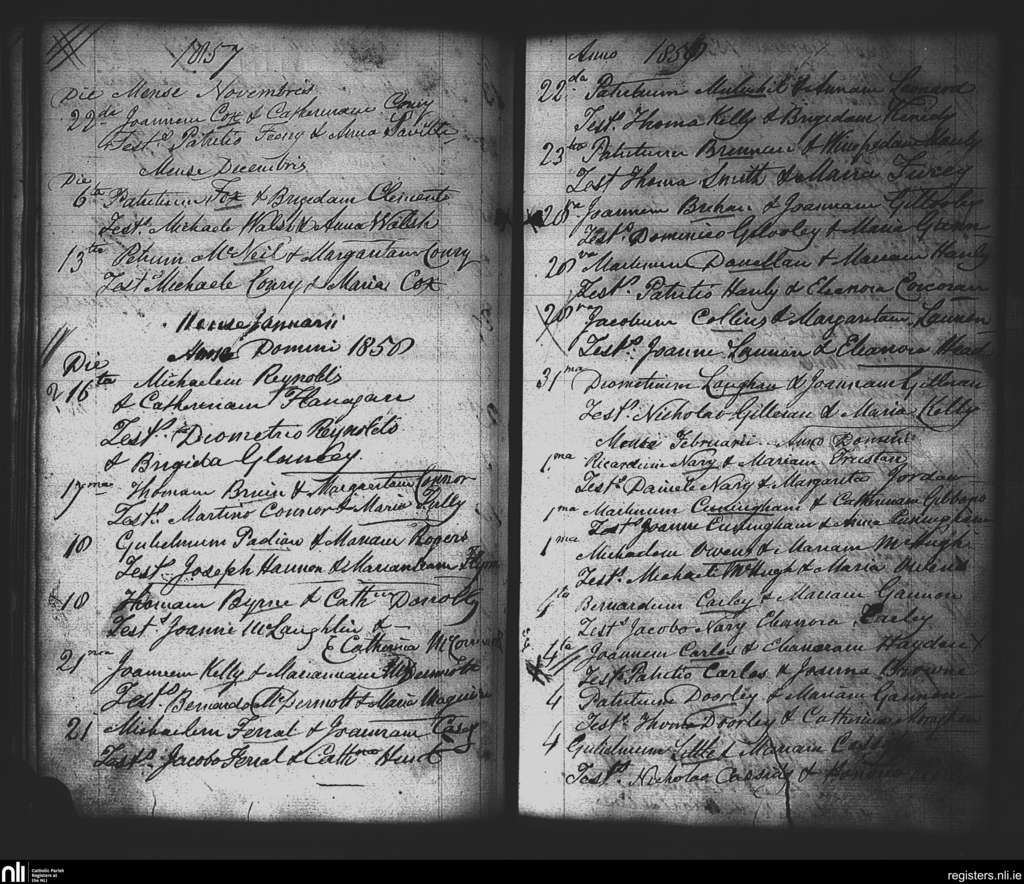 1857
Die Mense Novembris
22de Joannem Cox & Catherinam Conry
Test.s Patritio Feeny & Anna Saville
Mense Decembris
Die
6ta Patritium Fox & Brigedam Clemente
Test.s Michaele Walsh & Anna Walsh
13tia Petrum McNeil & Margaritam Conry
Test.s Michaele Conry & Maria Cox
Mense Januarii
Anno Domini 1858
Die
16ta Michaelem Reynolds
& Catherinam Flanagan
Test.s Diometrio Reynolds
& Brigida Glancey
17ma Thomam Bruin & Margaritam Connor
Test.s Martino Connor & Maria Lally
18 Gulielmum Padian & Mariam Rogers
Test.s Joseph Hannon & Mariam Flynn
18 Thomam Byrne & Cathrin Donolly
Test.s Joanne McLaughlin &
Catherina McCormick
21ma Joannem Kelly & Mariannam McDermott
Test.s Bernardo McDermott & Maria Maguire
21 Michaelem Ferral & Joannam Casey
Test.s Jacobo Ferral & Cath Hunt
Anno 1858
22da Patritium Mulvihil & Annam Leonard
Test.s Thoma Kelly & Brigedam Kenedy
23tia Patritium Brennan & Winefredam Hanly
Test Thoma Smith & Maria Furey
28va Joannem Brehan & Joannam Gillooley
Test.s Dominico Gillooley & Maria Glenn
28va Martinum Donellan & Mariam Hanly
Test.s Patritio Hanly & Eleanora Corcoran
28va Jacobum Collins & Margaritam Lannon
Test.s Joanne Lannon & Eleanora
31ma Diometrium Laughan & Joannam Gilleran
Test.s Nicholao Gilleran & Maria Kelly
Mense Februarii Anno Domini
1ma Ricardum Nary & Mariam Trustan
Test.s Daniele Nary & Margarita Jordan
1ma Martinum Cuningham & Catherinam Gibbons
Test.s Joanne Cuningham & Anna Cuningham
1ma Michaelem Owens & Mariam McHugh
Test.s Michaele McHugh & Maria Owens
4ta Bernardum Carley & Mariam Gannon
Test.s Jacobo Nary Elianora Carley
4ta Joannem Carlos & Elianoram Hayden
Test.s Patritio Carlos & Joanna Browne
4 Patritium Doorley & Mariam Gannon
Test.s Thoma Doorley & Catherina
4 Gulielmum Little & Mariam Cassidy
Test.s Nicholao Cassidy & Honoria
nli
Catholic Parish
Registers at
the NLI
registers.nli.ie